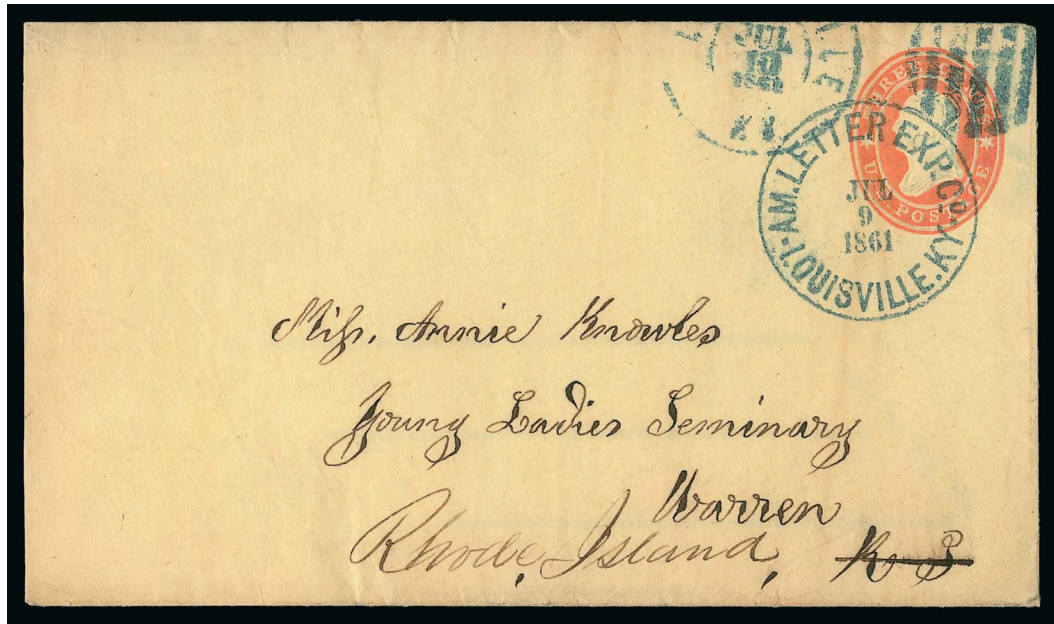 JUL
10
1861
THREE CENTS
U.S. POSTAGE
AM. LETTER EXP. Co.
JUL
9
1861
LOUISVILLE. KY.
Miss. Annie Knowles
Young Ladies Seminary
Warren
Rhode, Island,